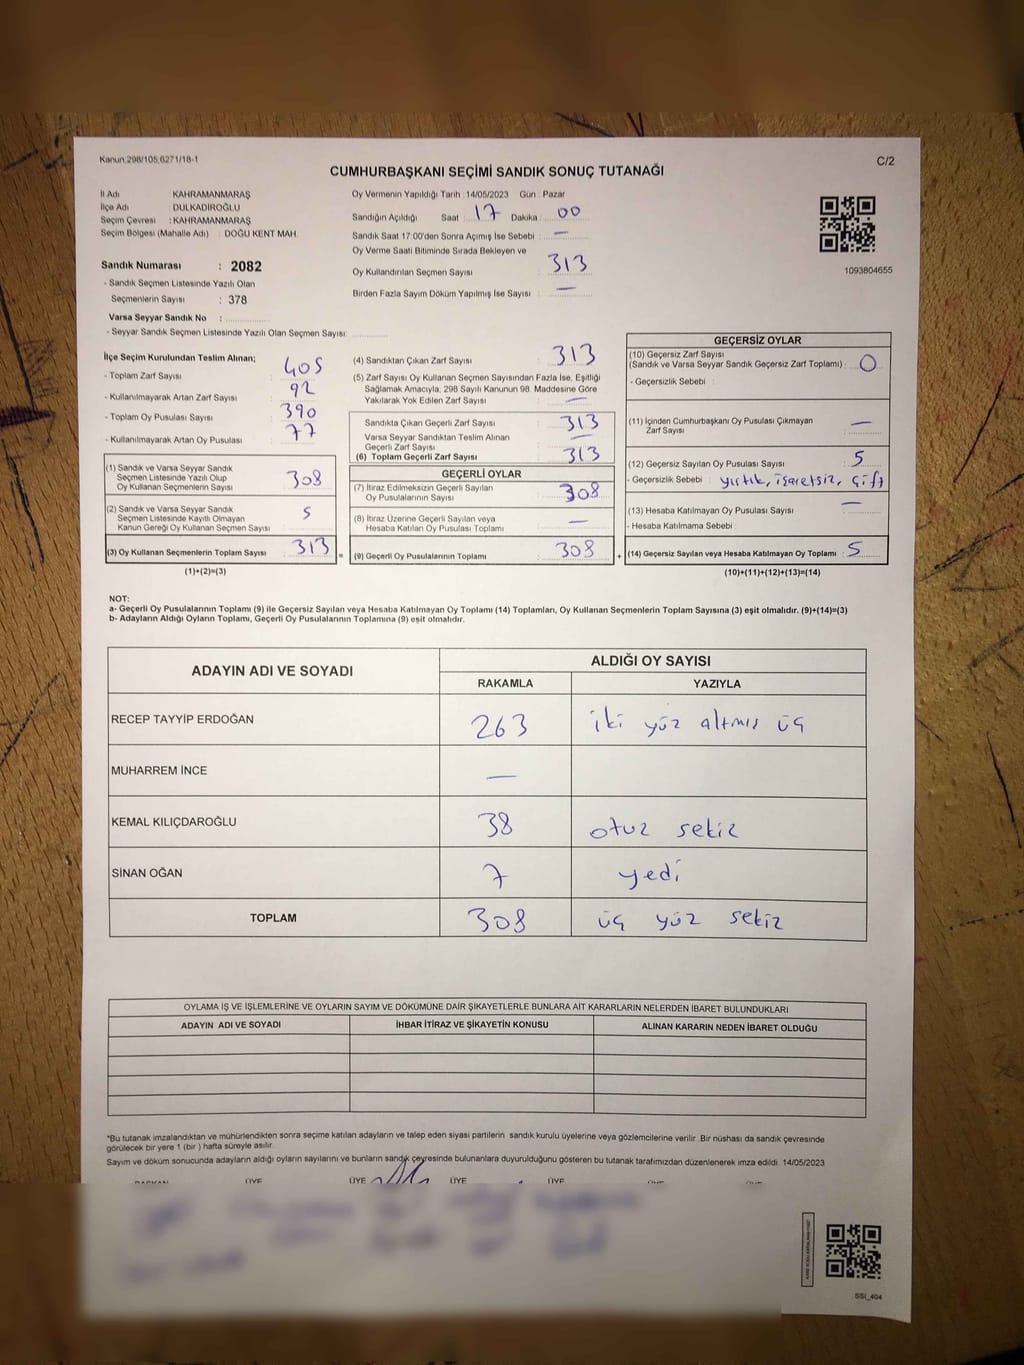 Kanun 298/105,6271/18-1
C/2
CUMHURBAŞKANI SEÇİMİ SANDIK SONUÇ TUTANAĞI
İl Adı KAHRAMANMARAŞ
İlçe Adı DULKADİROĞLU
Seçim Çevresi : KAHRAMANMARAŞ
Seçim Bölgesi (Mahalle Adı) : DOĞU KENT MAH.
Sandık Numarası : 2082
- Sandık Seçmen Listesinde Yazılı Olan
Seçmenlerin Sayısı : 378
Varsa Seyyar Sandık No :
- Seyyar Sandık Seçmen Listesinde Yazılı Olan Seçmen Sayısı:
Oy Vermenin Yapıldığı Tarih : 14/05/2023 Gün : Pazar
Sandığın Açıldığı Saat : 17 Dakika : 00
Sandık Saat 17:00'den Sonra Açımış İse Sebebi : —
Oy Verme Saati Bitiminde Sırada Bekleyen ve
Oy Kullandırılan Seçmen Sayısı : 313
Birden Fazla Sayım Döküm Yapılmış İse Sayısı : —
1093804655
İlçe Seçim Kurulundan Teslim Alınan;
- Toplam Zarf Sayısı : 405
- Kullanılmayarak Artan Zarf Sayısı : 92
- Toplam Oy Pusulası Sayısı : 390
- Kullanılmayarak Artan Oy Pusulası : 77
(1) Sandık ve Varsa Seyyar Sandık
Seçmen Listesinde Yazılı Olup
Oy Kullanan Seçmenlerin Sayısı : 308
(2) Sandık ve Varsa Seyyar Sandık
Seçmen Listesinde Kayıtlı Olmayan
Kanun Gereği Oy Kullanan Seçmen Sayısı : 5
(3) Oy Kullanan Seçmenlerin Toplam Sayısı : 313 =
(1)+(2)=(3)
(4) Sandıktan Çıkan Zarf Sayısı : 313
(5) Zarf Sayısı Oy Kullanan Seçmen Sayısından Fazla İse, Eşitliği
Sağlamak Amacıyla, 298 Sayılı Kanunun 98. Maddesine Göre
Yakılarak Yok Edilen Zarf Sayısı : —
Sandıkta Çıkan Geçerli Zarf Sayısı : 313
Varsa Seyyar Sandıktan Teslim Alınan
Geçerli Zarf Sayısı : —
(6) Toplam Geçerli Zarf Sayısı : 313
GEÇERLİ OYLAR
(7) İtiraz Edilmeksizin Geçerli Sayılan
Oy Pusulalarının Sayısı : 308
(8) İtiraz Üzerine Geçerli Sayılan veya
Hesaba Katılan Oy Pusulası Toplamı : —
(9) Geçerli Oy Pusulalarının Toplamı : 308 +
GEÇERSİZ OYLAR
(10) Geçersiz Zarf Sayısı
(Sandık ve Varsa Seyyar Sandık Geçersiz Zarf Toplamı) : 0
- Geçersizlik Sebebi :
(11) İçinden Cumhurbaşkanı Oy Pusulası Çıkmayan
Zarf Sayısı : —
(12) Geçersiz Sayılan Oy Pusulası Sayısı : 5
- Geçersizlik Sebebi : yırtık, işaretsiz, çift
(13) Hesaba Katılmayan Oy Pusulası Sayısı : —
- Hesaba Katılmama Sebebi :
(14) Geçersiz Sayılan veya Hesaba Katılmayan Oy Toplamı : 5
(10)+(11)+(12)+(13)=(14)
NOT:
a- Geçerli Oy Pusulalarının Toplamı (9) ile Geçersiz Sayılan veya Hesaba Katılmayan Oy Toplamı (14) Toplamları, Oy Kullanan Seçmenlerin Toplam Sayısına (3) eşit olmalıdır. (9)+(14)=(3)
b- Adayların Aldığı Oyların Toplamı, Geçerli Oy Pusulalarının Toplamına (9) eşit olmalıdır.
ADAYIN ADI VE SOYADI ALDIĞI OY SAYISI
RAKAMLA YAZIYLA
RECEP TAYYİP ERDOĞAN 263 iki yüz altmış üç
MUHARREM İNCE —
KEMAL KILIÇDAROĞLU 38 otuz sekiz
SİNAN OĞAN 7 yedi
TOPLAM 308 üç yüz sekiz
OYLAMA İŞ VE İŞLEMLERİNE VE OYLARIN SAYIM VE DÖKÜMÜNE DAİR ŞİKAYETLERLE BUNLARA AİT KARARLARIN NELERDEN İBARET BULUNDUKLARI
ADAYIN ADI VE SOYADI İHBAR İTİRAZ VE ŞİKAYETİN KONUSU ALINAN KARARIN NEDEN İBARET OLDUĞU
*Bu tutanak imzalandıktan ve mühürlendikten sonra seçime katılan adayların ve talep eden siyasi partilerin sandık kurulu üyelerine veya gözlemcilerine verilir. Bir nüshası da sandık çevresinde
görülecek bir yere 1 (bir) hafta süreyle asılır.
Sayım ve döküm sonucunda adayların aldığı oyların sayılarını ve bunların sandık çevresinde bulunanlara duyurulduğunu gösteren bu tutanak tarafımızdan düzenlenerek imza edildi. 14/05/2023
BAŞKAN ÜYE ÜYE ÜYE ÜYE
SSI_404